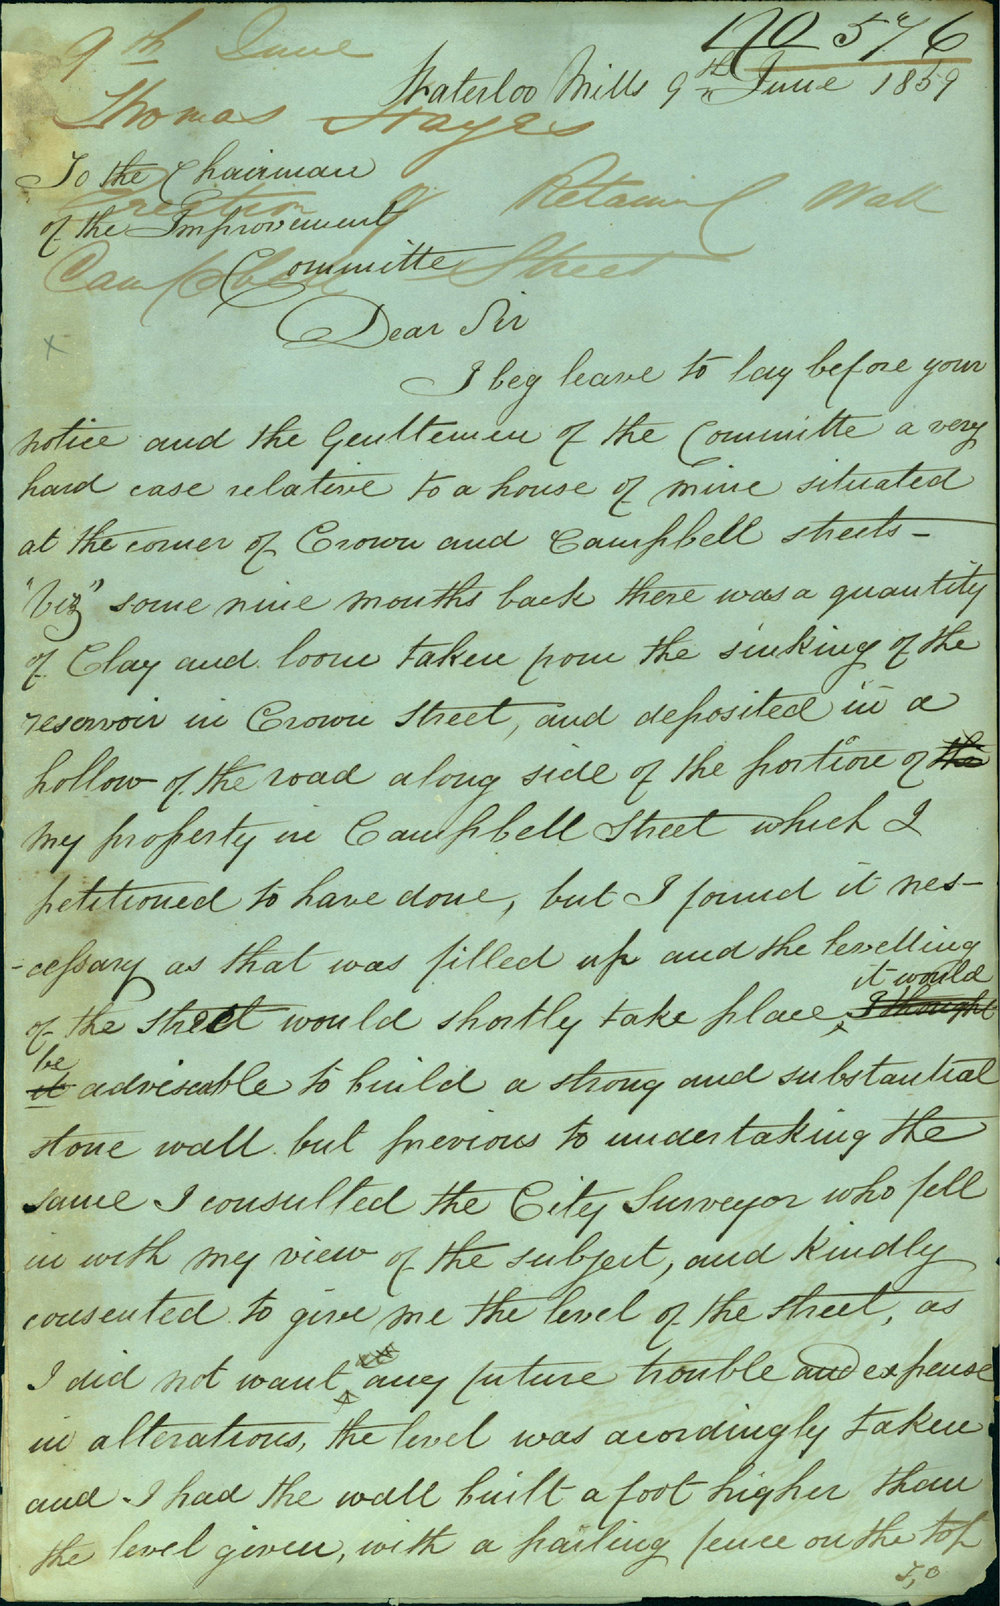 No 576
9th June
Waterloo Mills 9th June 1859
Thomas Hayes
To the Chairman
Erection of Retaining Wall
of the Improvement
Committe
Campbell Street
Dear Sir
I beg leave to lay before your
notice and the Gentlemen of the Committe a very
hard case relative to a house of mine situated
at the corner of Crown and Campbell streets –
"Viz" some nine months back there was a quantity
of Clay and loom taken from the sinking of the
reservoir in Crown Street, and deposited in a
hollow of the road along side of the portion of the
my property in Campbell Street which I
petitioned to have done, but I found it nes-
-cessary as that was filled up and the levelling
it would
of the street would shortly take place, I thought
be
it adviseable to build a strong and substantial
stone wall but previous to undertaking the
same I consulted the City Surveyor who fell
in with my view of the subject, and kindly
consented to give me the level of the street, as
I did not want any future trouble and expense
in alterations, the level was acordingly taken
and I had the wall built a foot higher than
the level given, with a pailing fence on the top